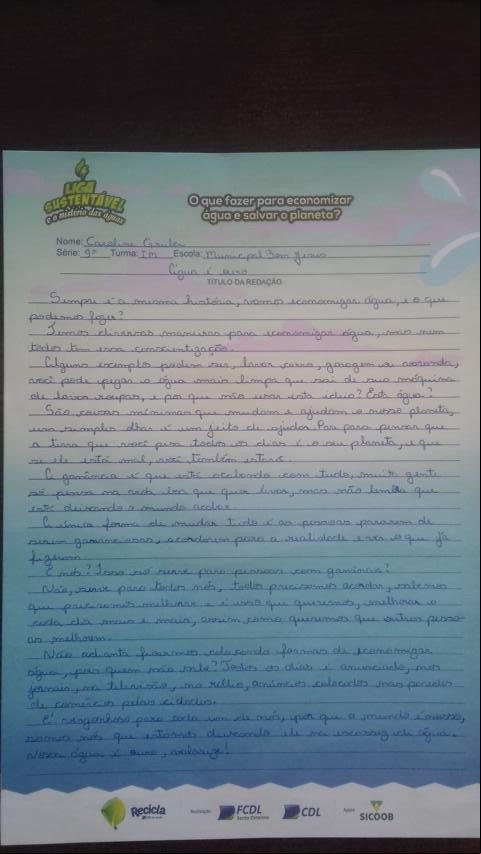 LIGA
SUSTENTÁVEL
e o mistério das águas
O que fazer para economizar
água e salvar o planeta?
Nome: Caroline
Série: 9º Turma: Im Escola: Municipal Bom Jesus
Água é ouro
TÍTULO DA REDAÇÃO
Sempre é a mesma história, vamos economizar água, e o que
podemos fazer?
Temos diversas maneiras para economizar água, mas nem
todos tem essa conscientização.
Alguns exemplos podem ser, lavar carro, garagem ou varanda,
você pode pegar a água mais limpa que sai de sua máquina
de lavar roupas, e por que não usar esta ideia? Esta água?
São coisas mínimas que mudam e ajudam o nosso planeta,
um simples olhar é um jeito de ajudar. Pare para pensar que
a terra que você pisa todos os dias é o seu planeta, e que
se ele está mal, você também estará.
A ganância é que está acabando com tudo, muita gente
só pensa na vida boa que quer levar, mas não lembra que
está deixando o mundo acabar.
A única forma de mudar tudo é as pessoas pararem de
serem gananciosas, acordarem para a realidade e ver o que já
fizeram.
E nós? Isso só serve para pessoas com ganância!
Não, serve para todos nós, todos precisamos acordar, sabemos
que precisamos melhorar e é isso que queremos, melhorar a
cada dia mais e mais, assim como queremos que outras pesso-
as melhorem.
Não adianta ficarmos colocando formas de economizar
água, pois quem não sabe? Todos os dias é anunciado, nos
jornais, na televisão, no rádio, anúncios colocados nas paredes
de comércios pelas cidades.
É vergonhoso para cada um de nós, por que o mundo é nosso,
somos nós que estamos deixando ele na escassez de água.
Nossa água é ouro, valorize!
Recicla
Realização
FCDL
Santa Catarina
CDL
Apoio
SICOOB